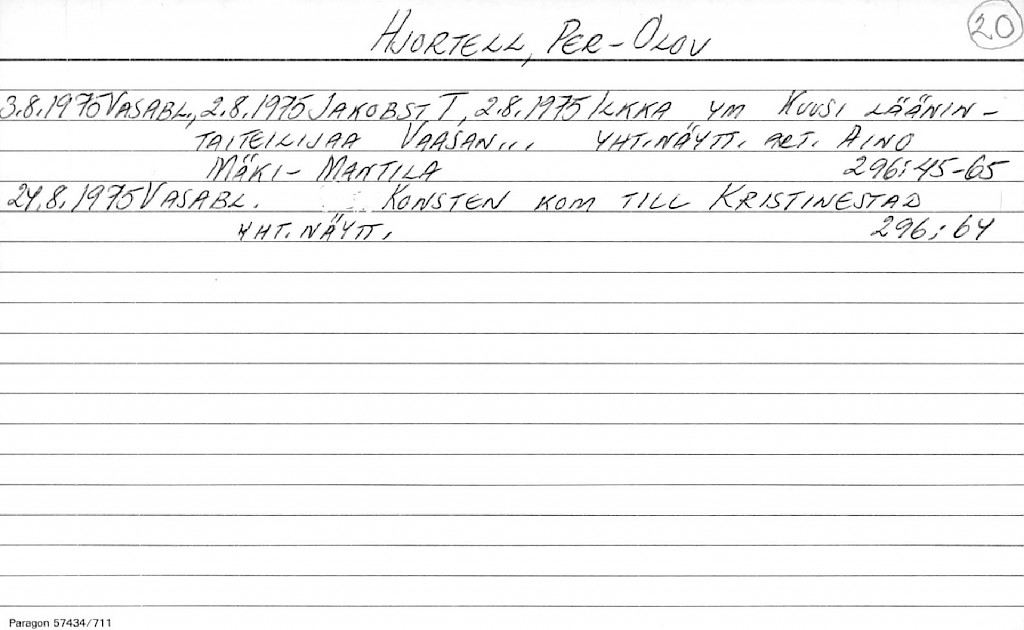 HJORTELL, PER-OLOV
20
3.8.1975 VASABL., 2.8.1975 JAKOBST. T, 2.8.1975 ILKKA YM KUUSI LÄÄNIN-
TAITEILIJAA VAASAN... YHT.NÄYTT. ART. AINO
MÄKI-MANTILA 296:45-65
24.8.1975 VASABL. KONSTEN KOM TILL KRISTINESTAD
YHT.NÄYTT. 296:64
Paragon 57434/711